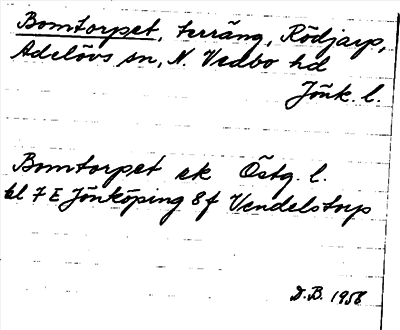 Bomtorpet, terräng, Rödjarp,
Adelövs sn, N. Vedbo hd
Jönk. l.
Bomtorpet ek Östg. l.
bl 7 E Jönköping 8 f Vendelstorp
D.B. 1956